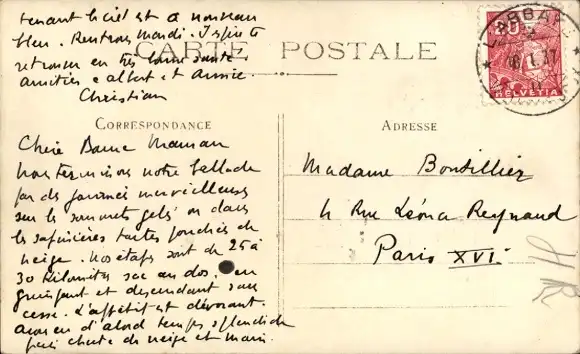 tenant le ciel est à nouveau
bleu. Rentrons mardi. J'espère te
retrouver en très bonne santé
amitiés à albert et Annie.
Christian
CARTE POSTALE
CORRESPONDANCE
Chère Bonne Maman
nous terminons notre ballade
par des journées merveilleuses
sur les sommets gelés ou dans
les sapinières toutes jonchées de
neige. Nos étapes sont de 25 à
30 Kilomètres sac au dos. en
grimpant et descendant sans
cesse. L'appétit est dévorant.
avons eu d'abord temps splendide
puis chute de neige et main
ADRESSE
Madame Boutillier
4 Rue Léonce Reynaud
Paris XVI
20
HELVETIA